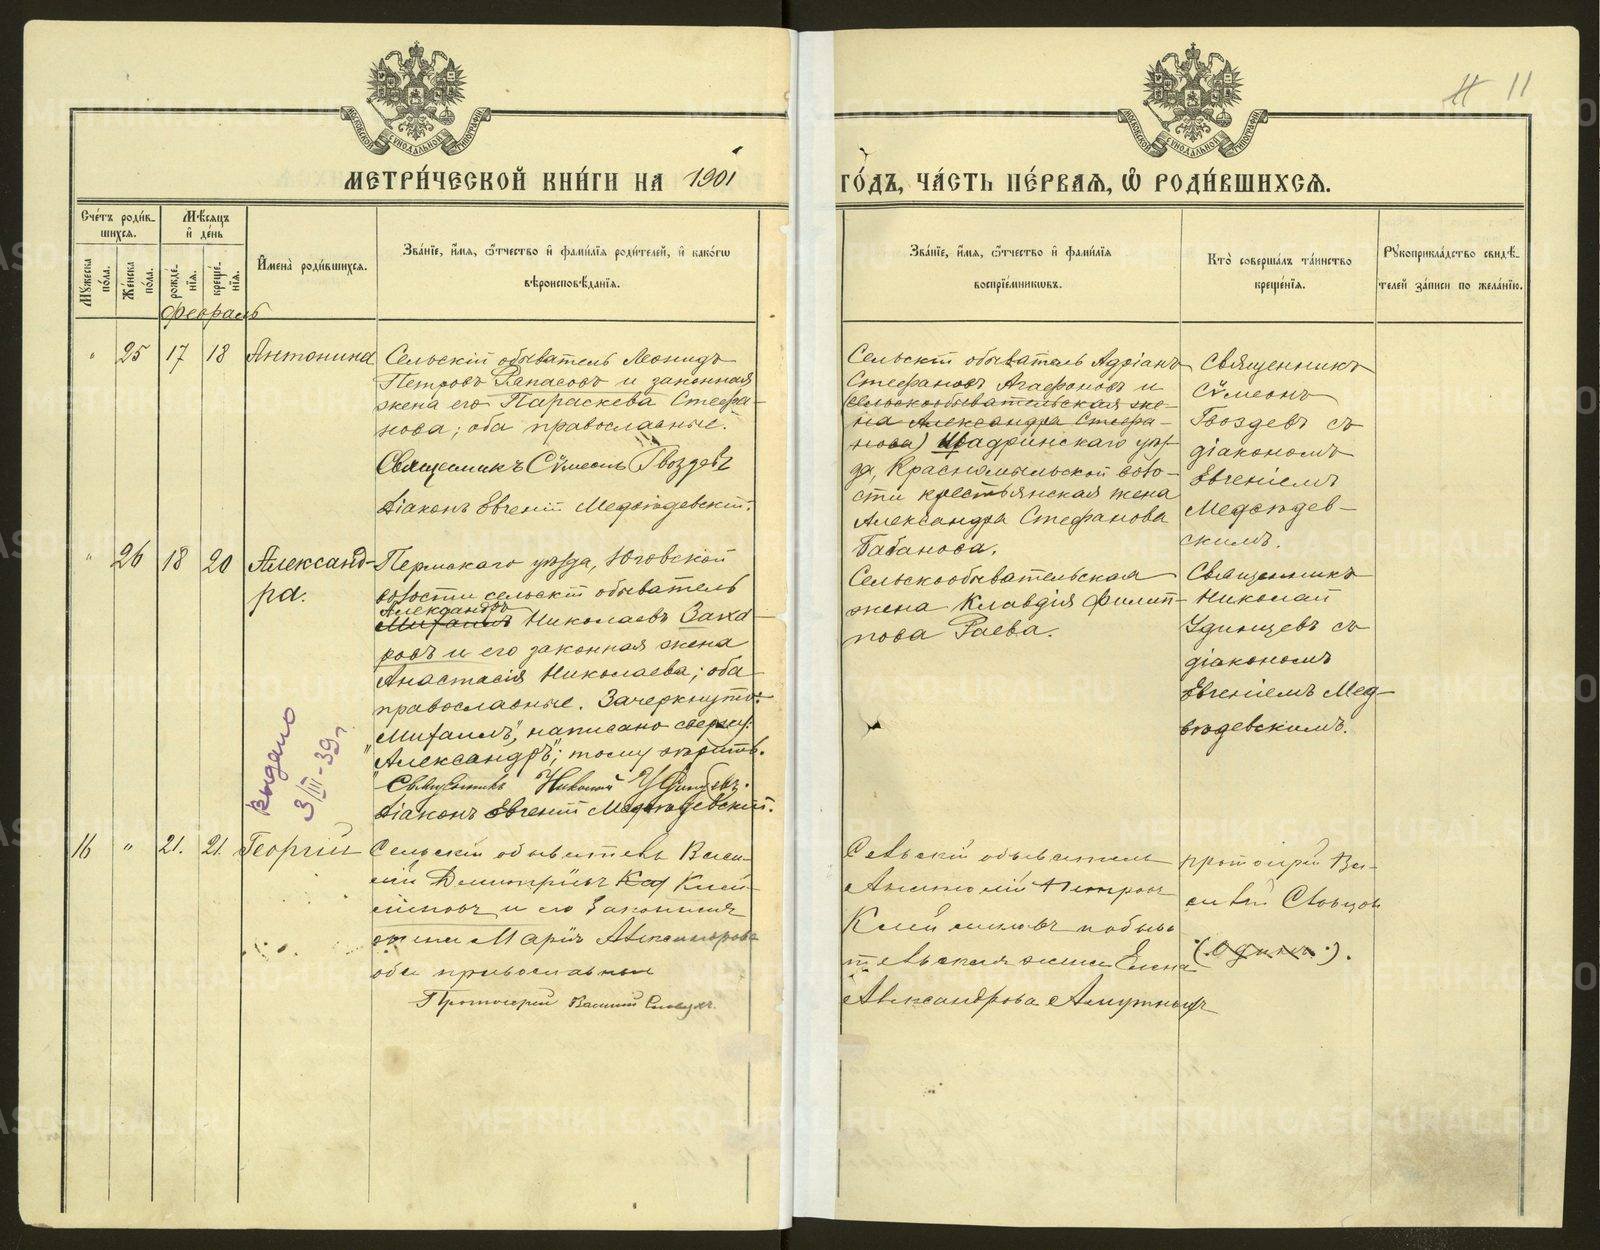 11
МЕТРИ́ЧЕСКОЙ КНИ́ГИ НА 1901 ГО́ДЪ, ЧА́СТЬ ПЕ́РВАЯ, Ѽ РОДИ́ВШИХСЯ.
МОСКОВСКОЙ СѴНОДАЛЬНОЙ ТИПОГРАФІИ
МОСКОВСКОЙ СѴНОДАЛЬНОЙ ТИПОГРАФІИ
Сче́тъ роди́в-
шихся.
Мѣ́сяцъ
и҆ де́нь
Мꙋ́жеска
по́ла.
Же́нска
по́ла.
рожде́-
нїя.
креще́-
нїя.
И҆мена̀ роди́вшихся.
Зва́нїе, и҆́мя, ѻ҆́тчество и҆ фами́лїѧ роди́телей, и҆ како́гѡ
вѣроисповѣ́данїѧ.
Зва́нїе, и҆́мя, ѻ҆́тчество и҆ фами́лїѧ
воспрїе́мникѡвъ.
Кто̀ соверша́лъ та́инство
креще́нїѧ.
Рꙋкоприкла́дство свидѣ́-
телей за́писи по жела́нїю.
Февраль
" 25 17 18 Антонина
Сельскій обыватель Леонидъ
Петровъ и законная
жена его Параскева Стефа-
нова; оба православные.
Священникъ Сѵмеонъ Гвоздевъ
Діаконъ Евгеній Медвѣдевскій.
Сельскій обыватель Адріанъ
Стефановъ Агафоновъ и
(сельскообывательская же-
на Александра Стефа-
нова) Шадринскаго уѣз-
да, Красномыльской воло-
сти крестьянская жена
Александра Стефанова
Бабанова.
Священникъ
Сѵмеонъ
Гвоздевъ съ
діакономъ
Евгеніемъ
Медвѣдев-
скимъ.
" 26 18 20 Александ-
ра.
Пермскаго уѣзда, Юговской
волости сельскій обыватель
Александръ
Михаилъ Николаевъ Заха-
ровъ и его законная жена
Анастасія Николаева; оба
православные. Зачеркнуто:
"Михаилъ", написано сверху:
"Александръ"; тому вѣрить.
Священникъ Николай Удинцевъ.
Діаконъ Евгеній Медвѣдевскій.
Сельскообывательская
жена Клавдія Филип-
пова Раева.
Священникъ
Николай
Удинцевъ съ
діакономъ
Евгеніемъ Мед-
вѣдевскимъ.
выдано
3/III-39 г.
16 " 21. 21. Георгій
Сельскій обыватель Васи-
лій Димитріевъ Клей-
и его законная
жена Марія Александрова
оба православные
Протоіерей Василій Словцовъ.
Сельскій обыватель
Анатолій Петровъ
и обыва-
тельская жена Елена
Александрова
протоіерей Ва-
силій Словцов
(Одинъ).
METRIKI.GASO-URAL.RU